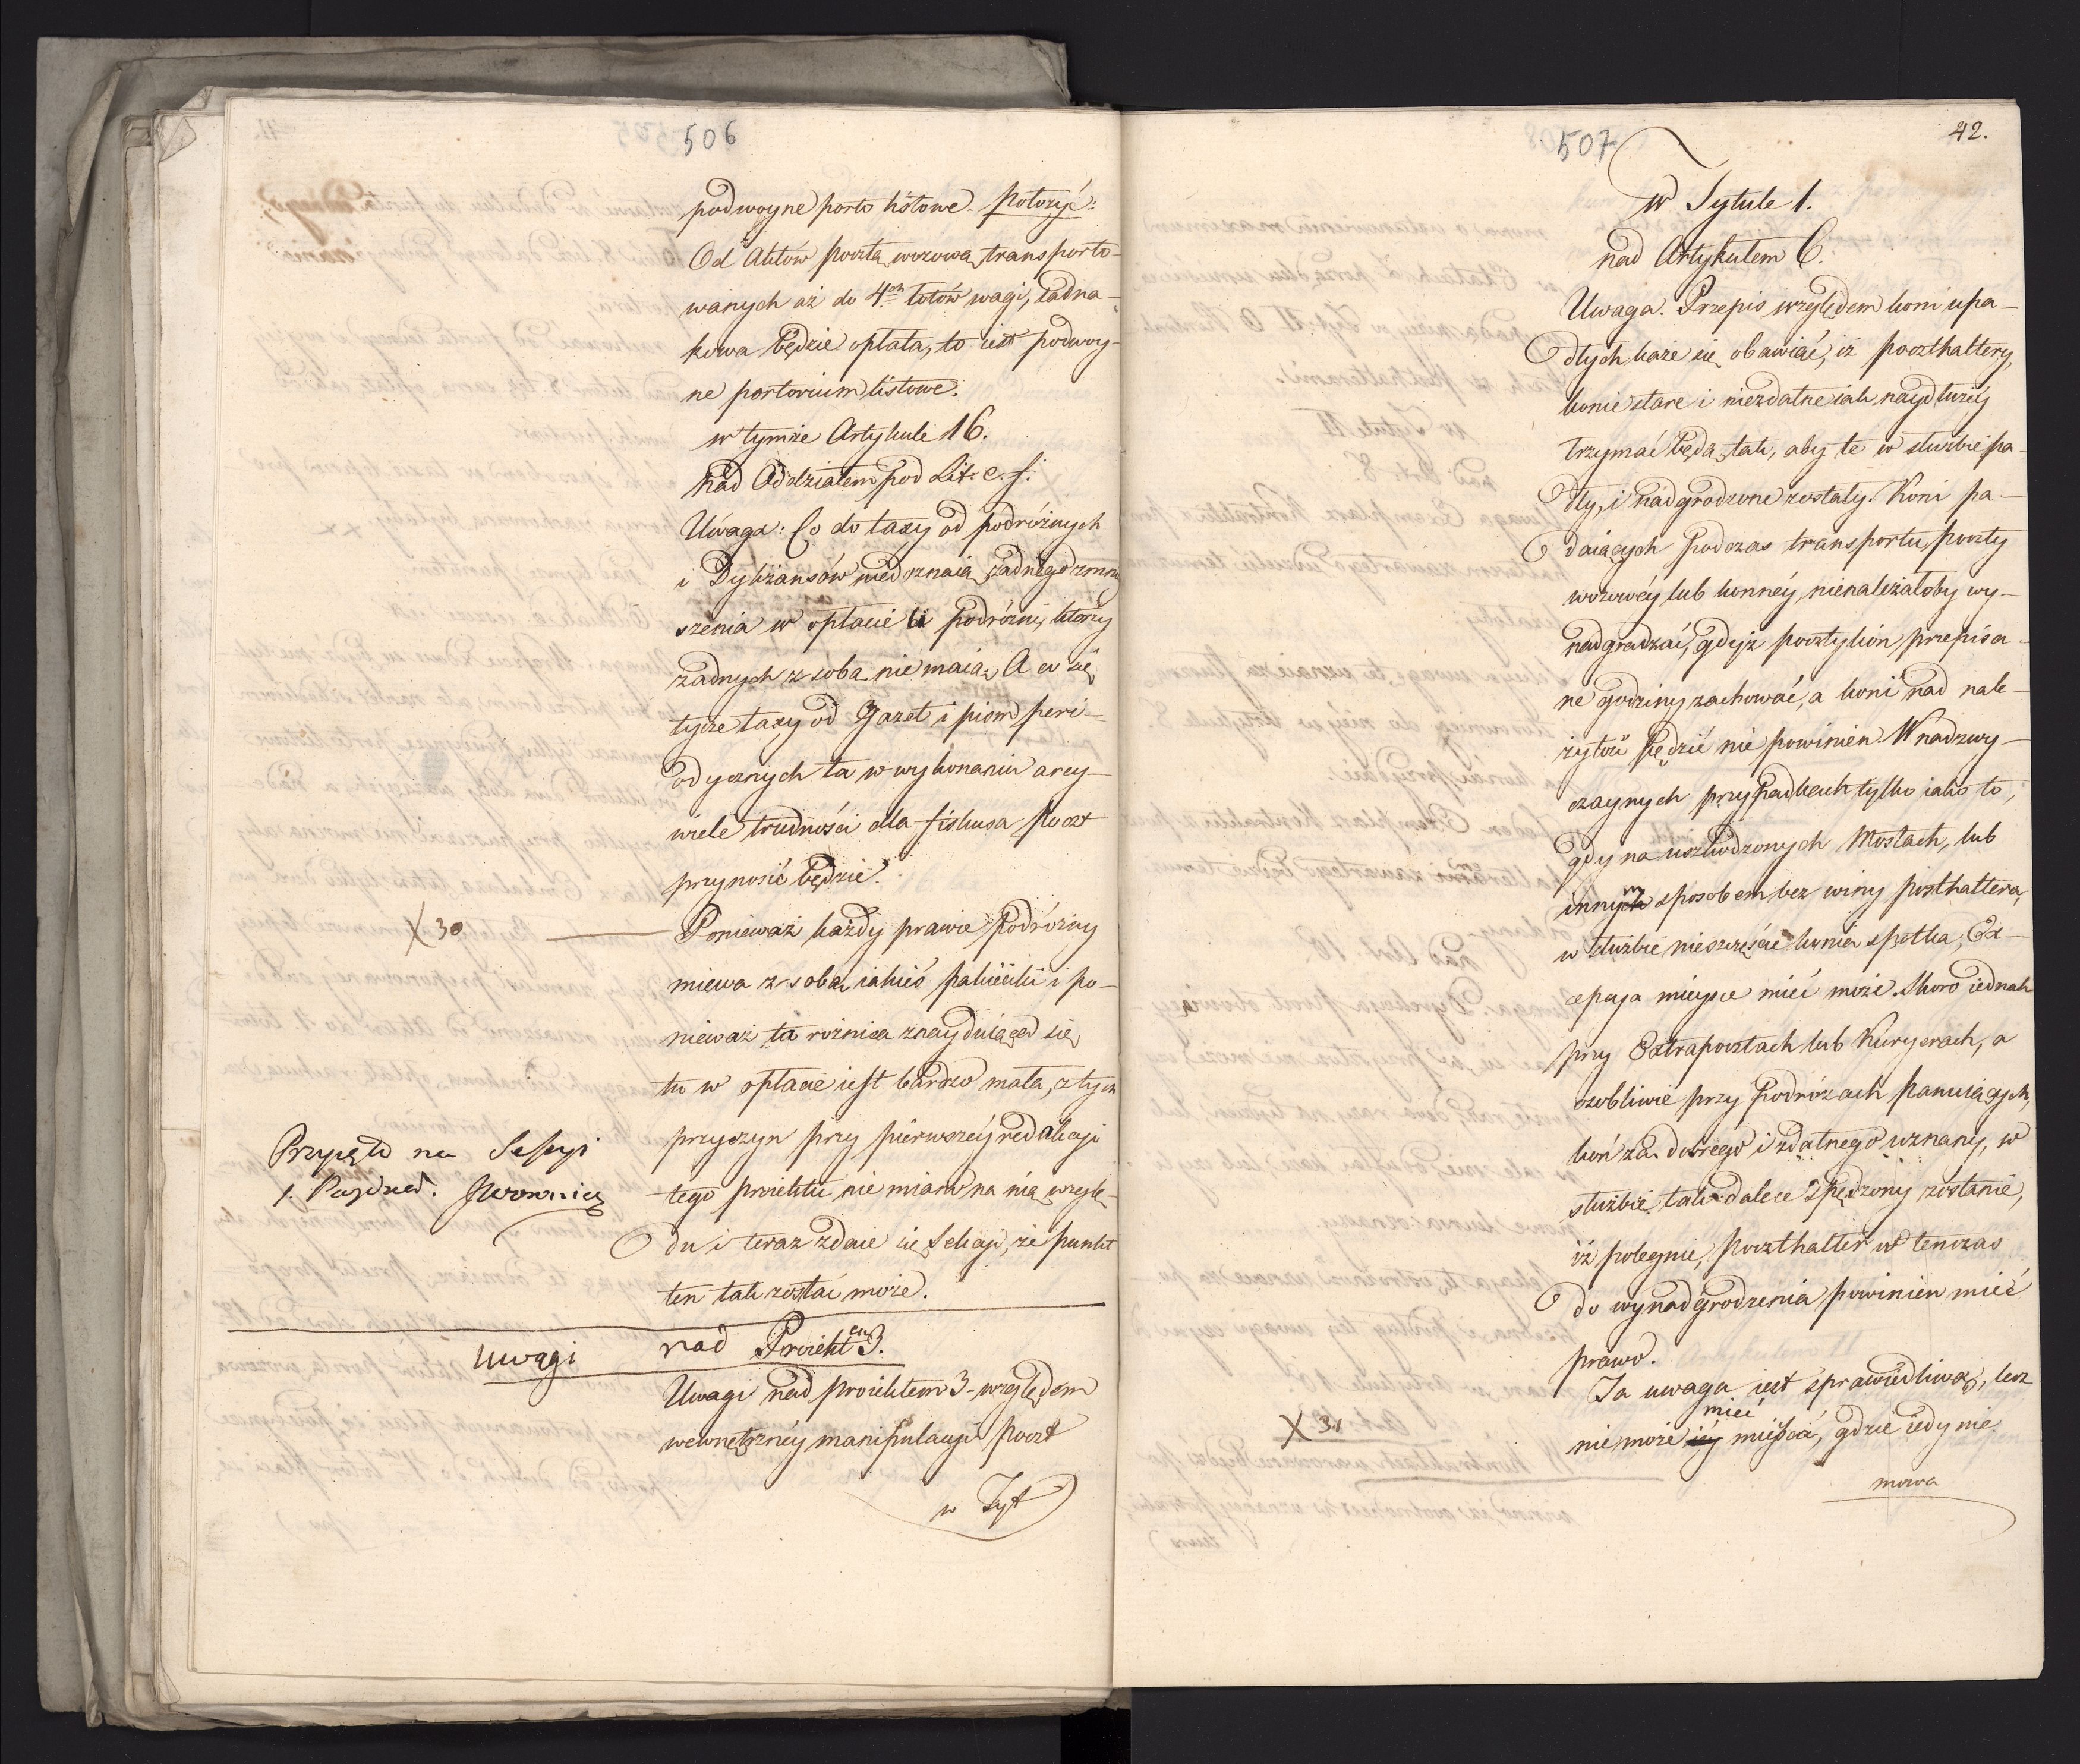 506
podwoyne porto listowe. Położyć:
Od Aktów pocztą wozową transporto-
wanych aż do 4ch łotów wagi, iedna-
kowa będzie opłata, to iest podwoy-
ne portorium listowe.
w tymże Artykule 16.
nad Oddziałem pod Lit: e. f:
Uwaga: Co do taxy od podróżnych
i Dyliżansów niedoznaią żadnego zmniey
szenia w opłacie ci podróżni, którzy
żadnych z sobą nie maią, A co się
tycze taxy od Gazet i pism peri-
odycznych ta w wykonaniu arcy-
wiele trudności dla fiskusa Poczt
przynosić będzie.
X 30
Ponieważ każdy prawie Podróżny
miewa z sobą iakieś pakieciki i po-
nieważ ta różnica znayduiąca się
tu w opłacie iest bardzo mała, z tych
przyczyn przy pierwszéy redakcyi
tego proiektu nie miano na nią wzglę-
du i teraz zdaie się Sekcyi, że punkt
ten tak zostać może.
Przyięto na Sessyi
1. Paźdz.
Uwagi nad Proiektem 3.
Uwagi nad proiektem 3 względem
wewnętrznéy manipulacyi poczt
w Tyt
507
42.
w Tytule 1.
nad Artykułem 6.
Uwaga. Przepis względem koni upa-
dłych każe się obawiać, iż poczthaltery,
konie stare i niezdatne iak naydłużéy
trzymać będą tak, aby te w służbie pa-
dły, i nadgrodzone zostały. Koni pa-
daiących podczas transportu poczty
wozowéy lub konnéy, nienależałoby wy-
nadgradzać, gdyż pocztylion przepisa-
ne godziny zachować, a koni nad nale-
żytość pędzić nie powinien. W nadzwy-
czaynych przypadkach tylko iako to,
gdy na uszkodzonych Mostach, lub
innym sposobem bez winy posthaltera,
w służbie nieszczęście konia spotka, Ex-
cepcya mieysce mieć może. Skoro iednak
przy Extrapocztach lub Kuryerach, a
osobliwie przy Podróżach panuiących,
koń za dobrego i zdatnego uznany, w
służbie tak dalece spędzony zostanie,
iż polegnie, poczthalter w tenczas
do wynadgrodzenia powinien mieć
prawo.
X 31
Ta uwaga iest sprawiedliwą, lecz
nie może mieć mieysca, gdzie iedynie
mowa